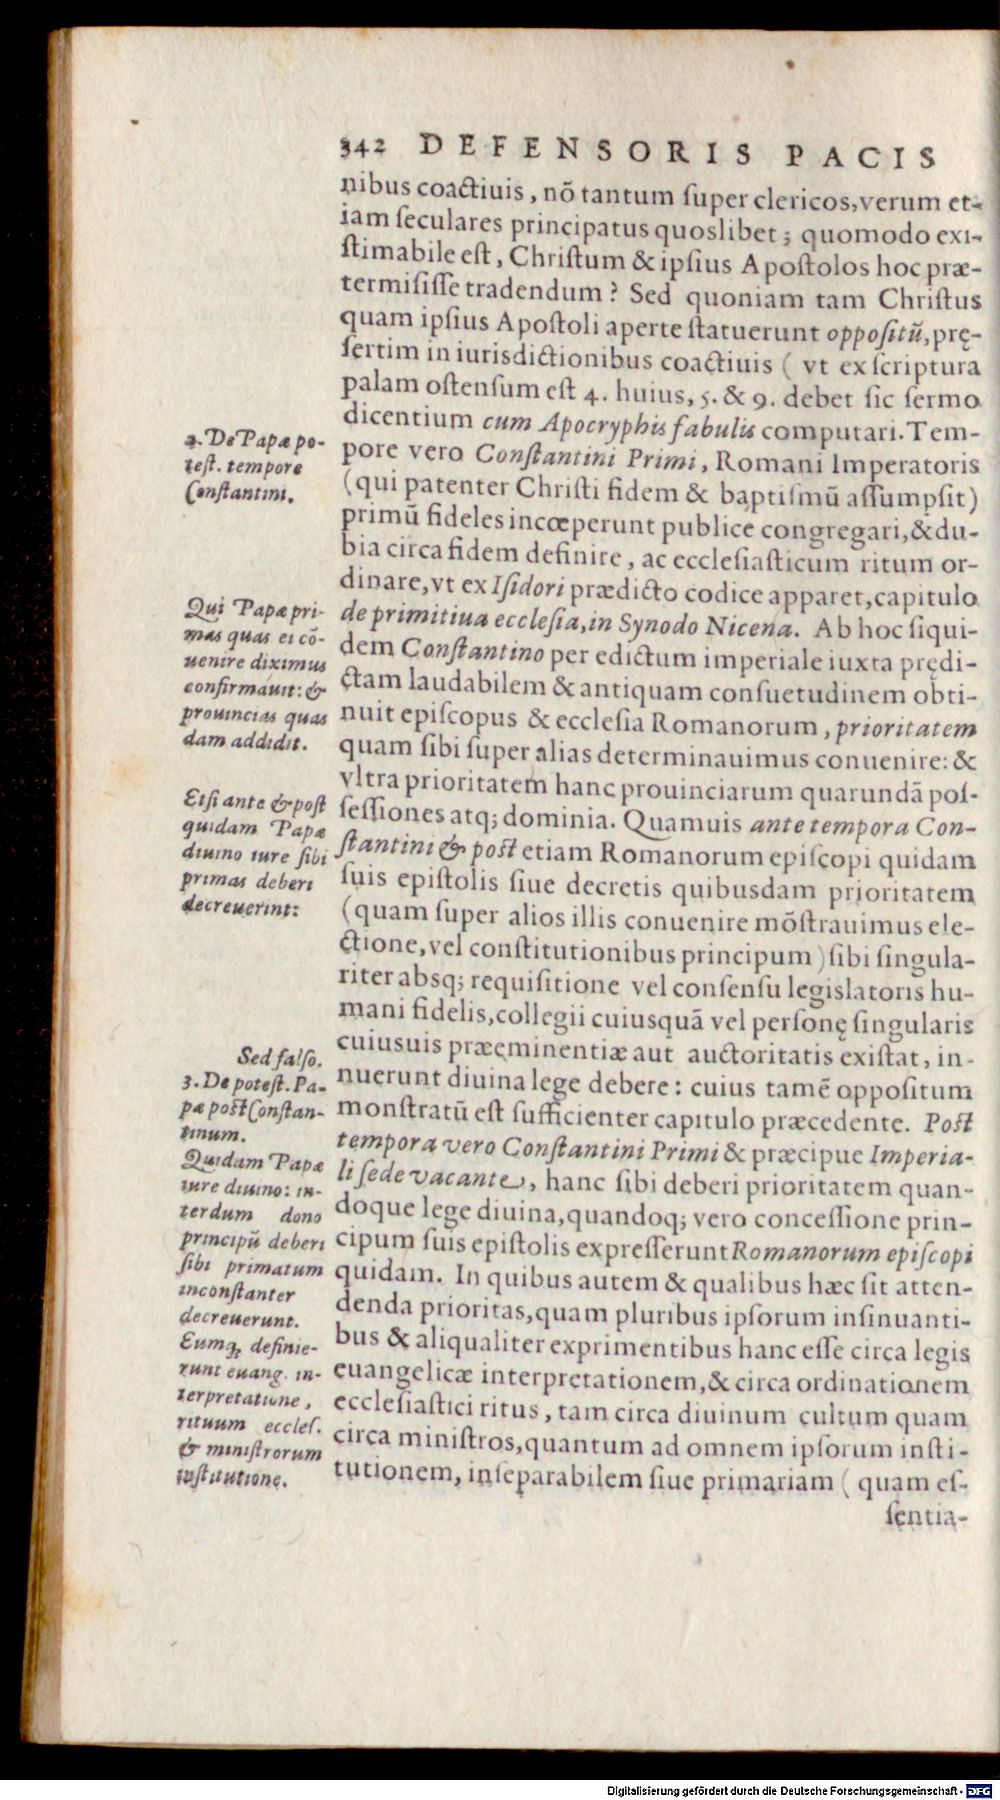 342 DEFENSORIS PACIS
nibus coactiuis, nõ tantum ſuper clericos, verum et-
iam ſeculares principatus quoslibet; quomodo exi-
ſtimabile eſt, Chriſtum & ipſius Apoſtolos hoc præ-
termiſiſſe tradendum? Sed quoniam tam Chriſtus
quam ipſius Apoſtoli aperte ſtatuerunt oppoſitũ, prę-
ſertim in iurisdictionibus coactiuis ( vt ex ſcriptura
palam oſtenſum eſt 4. huius, 5. & 9. debet ſic ſermo
dicentium cum Apocryphis fabulis computari. Tem-
pore vero Conſtantini Primi, Romani Imperatoris
(qui patenter Chriſti fidem & baptiſmũ aſſumpſit)
primũ fideles incœperunt publice congregari, & du-
bia circa fidem definire, ac eccleſiaſticum ritum or-
dinare, vt ex Iſidori prædicto codice apparet, capitulo
de primitiua eccleſia, in Synodo Nicena. Ab hoc ſiqui-
dem Conſtantino per edictum imperiale iuxta prędi-
ctam laudabilem & antiquam conſuetudinem obti-
nuit epiſcopus & eccleſia Romanorum, prioritatem
quam ſibi ſuper alias determinauimus conuenire: &
vltra prioritatem hanc prouinciarum quarundã poſ-
ſeſſiones atq; dominia. Quamuis ante tempora Con-
ſtantini & poſt etiam Romanorum epiſcopi quidam
ſuis epiſtolis ſiue decretis quibusdam prioritatem
(quam ſuper alios illis conuenire mõſtrauimus ele-
ctione, vel conſtitutionibus principum) ſibi ſingula-
riter absq; requiſitione vel conſenſu legislatoris hu-
mani fidelis, collegii cuiusquã vel perſonę ſingularis
cuiusuis præęminentiæ aut auctoritatis exiſtat, in-
nuerunt diuina lege debere: cuius tamẽ oppoſitum
monſtratũ eſt ſufficienter capitulo præcedente. Poſt
tempora vero Conſtantini Primi & præcipue Imperia-
li ſede vacante, hanc ſibi deberi prioritatem quan-
doque lege diuina, quandoq; vero conceſſione prin-
cipum ſuis epiſtolis expreſſerunt Romanorum epiſcopi
quidam. In quibus autem & qualibus hæc ſit atten-
denda prioritas, quam pluribus ipſorum inſinuanti-
bus & aliqualiter exprimentibus hanc eſſe circa legis
euangelicæ interpretationem, & circa ordinationem
eccleſiaſtici ritus, tam circa diuinum cultum quam
circa miniſtros, quantum ad omnem ipſorum inſti-
tutionem, inſeparabilem ſiue primariam ( quam eſ-
ſentia-
2. De Papæ po-
teſt. tempore
Conſtantini.
Qui Papæ pri-
mas quas ei cõ-
uenire diximus
confirmauit: &
prouincias quas
dam addidit.
Etſi ante & poſt
quidam Papæ
diuino iure ſibi
primas deberi
decreuerint:
Sed falſo.
3. De poteſt. Pa-
pæ poſt Conſtan-
tinum.
Quidam Papæ
iure diuino: in-
terdum dono
principũ deberi
ſibi primatum
inconſtanter
decreuerunt.
Eumq; definie-
runt euang. in-
terpretatione,
rituum eccleſ.
& miniſtrorum
inſtitutione.
Digitalisierung gefördert durch die Deutsche Forschungsgemeinschaft - DFG